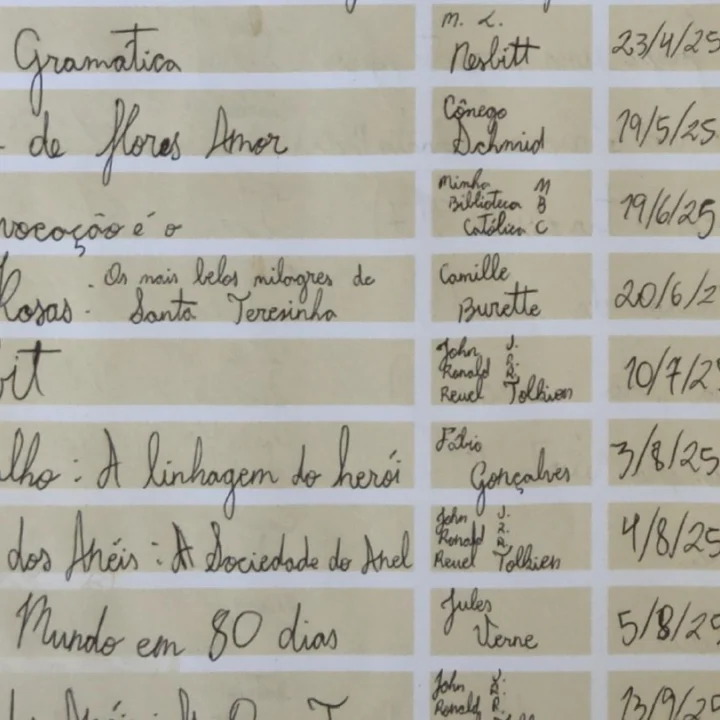 Gramática M. L. Nesbitt 23/4/25
de flores Amor Cônego Schmid 19/5/25
vocação é o Minha Biblioteca Católica M B C 19/6/25
Rosas: Os mais belos milagres de Santa Teresinha Camille Burette 20/6/2
bit John Ronald Reuel J. R. R. Tolkien 10/7/2
lho: A linhagem do herói Fábio Gonçalves 3/8/25
dos Anéis: A Sociedade do Anel John Ronald Reuel J. R. R. Tolkien 4/8/25
Mundo em 80 dias Jules Verne 5/8/25
Anéis: John Ronald J. R. 13/9/25